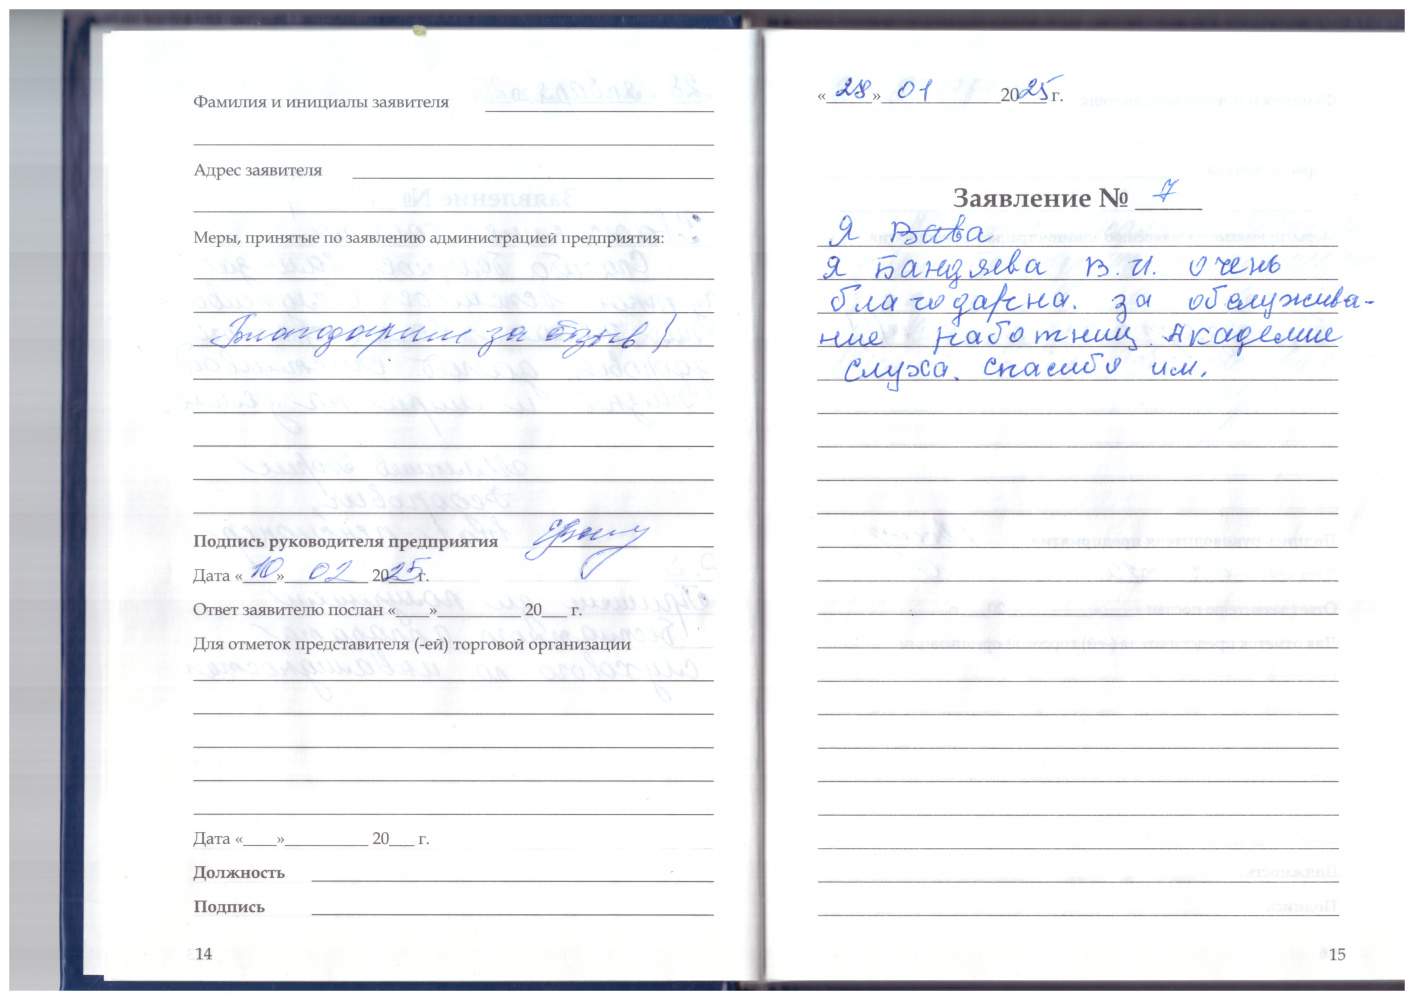 Фамилия и инициалы заявителя
Адрес заявителя
Меры, принятые по заявлению администрацией предприятия:
Благодарим за отзыв!
Подпись руководителя предприятия
Дата «10» 02 2025 г.
Ответ заявителю послан «____»__________ 20___ г.
Для отметок представителя (-ей) торговой организации
Дата «____»__________ 20___ г.
Должность
Подпись
14
«28» 01 2025 г.
Заявление № 7
Я Вава
Я Бандяева В.И. очень
благодарна. за обслужива-
ние работниц. Академие
слуха. спасибо им.
15